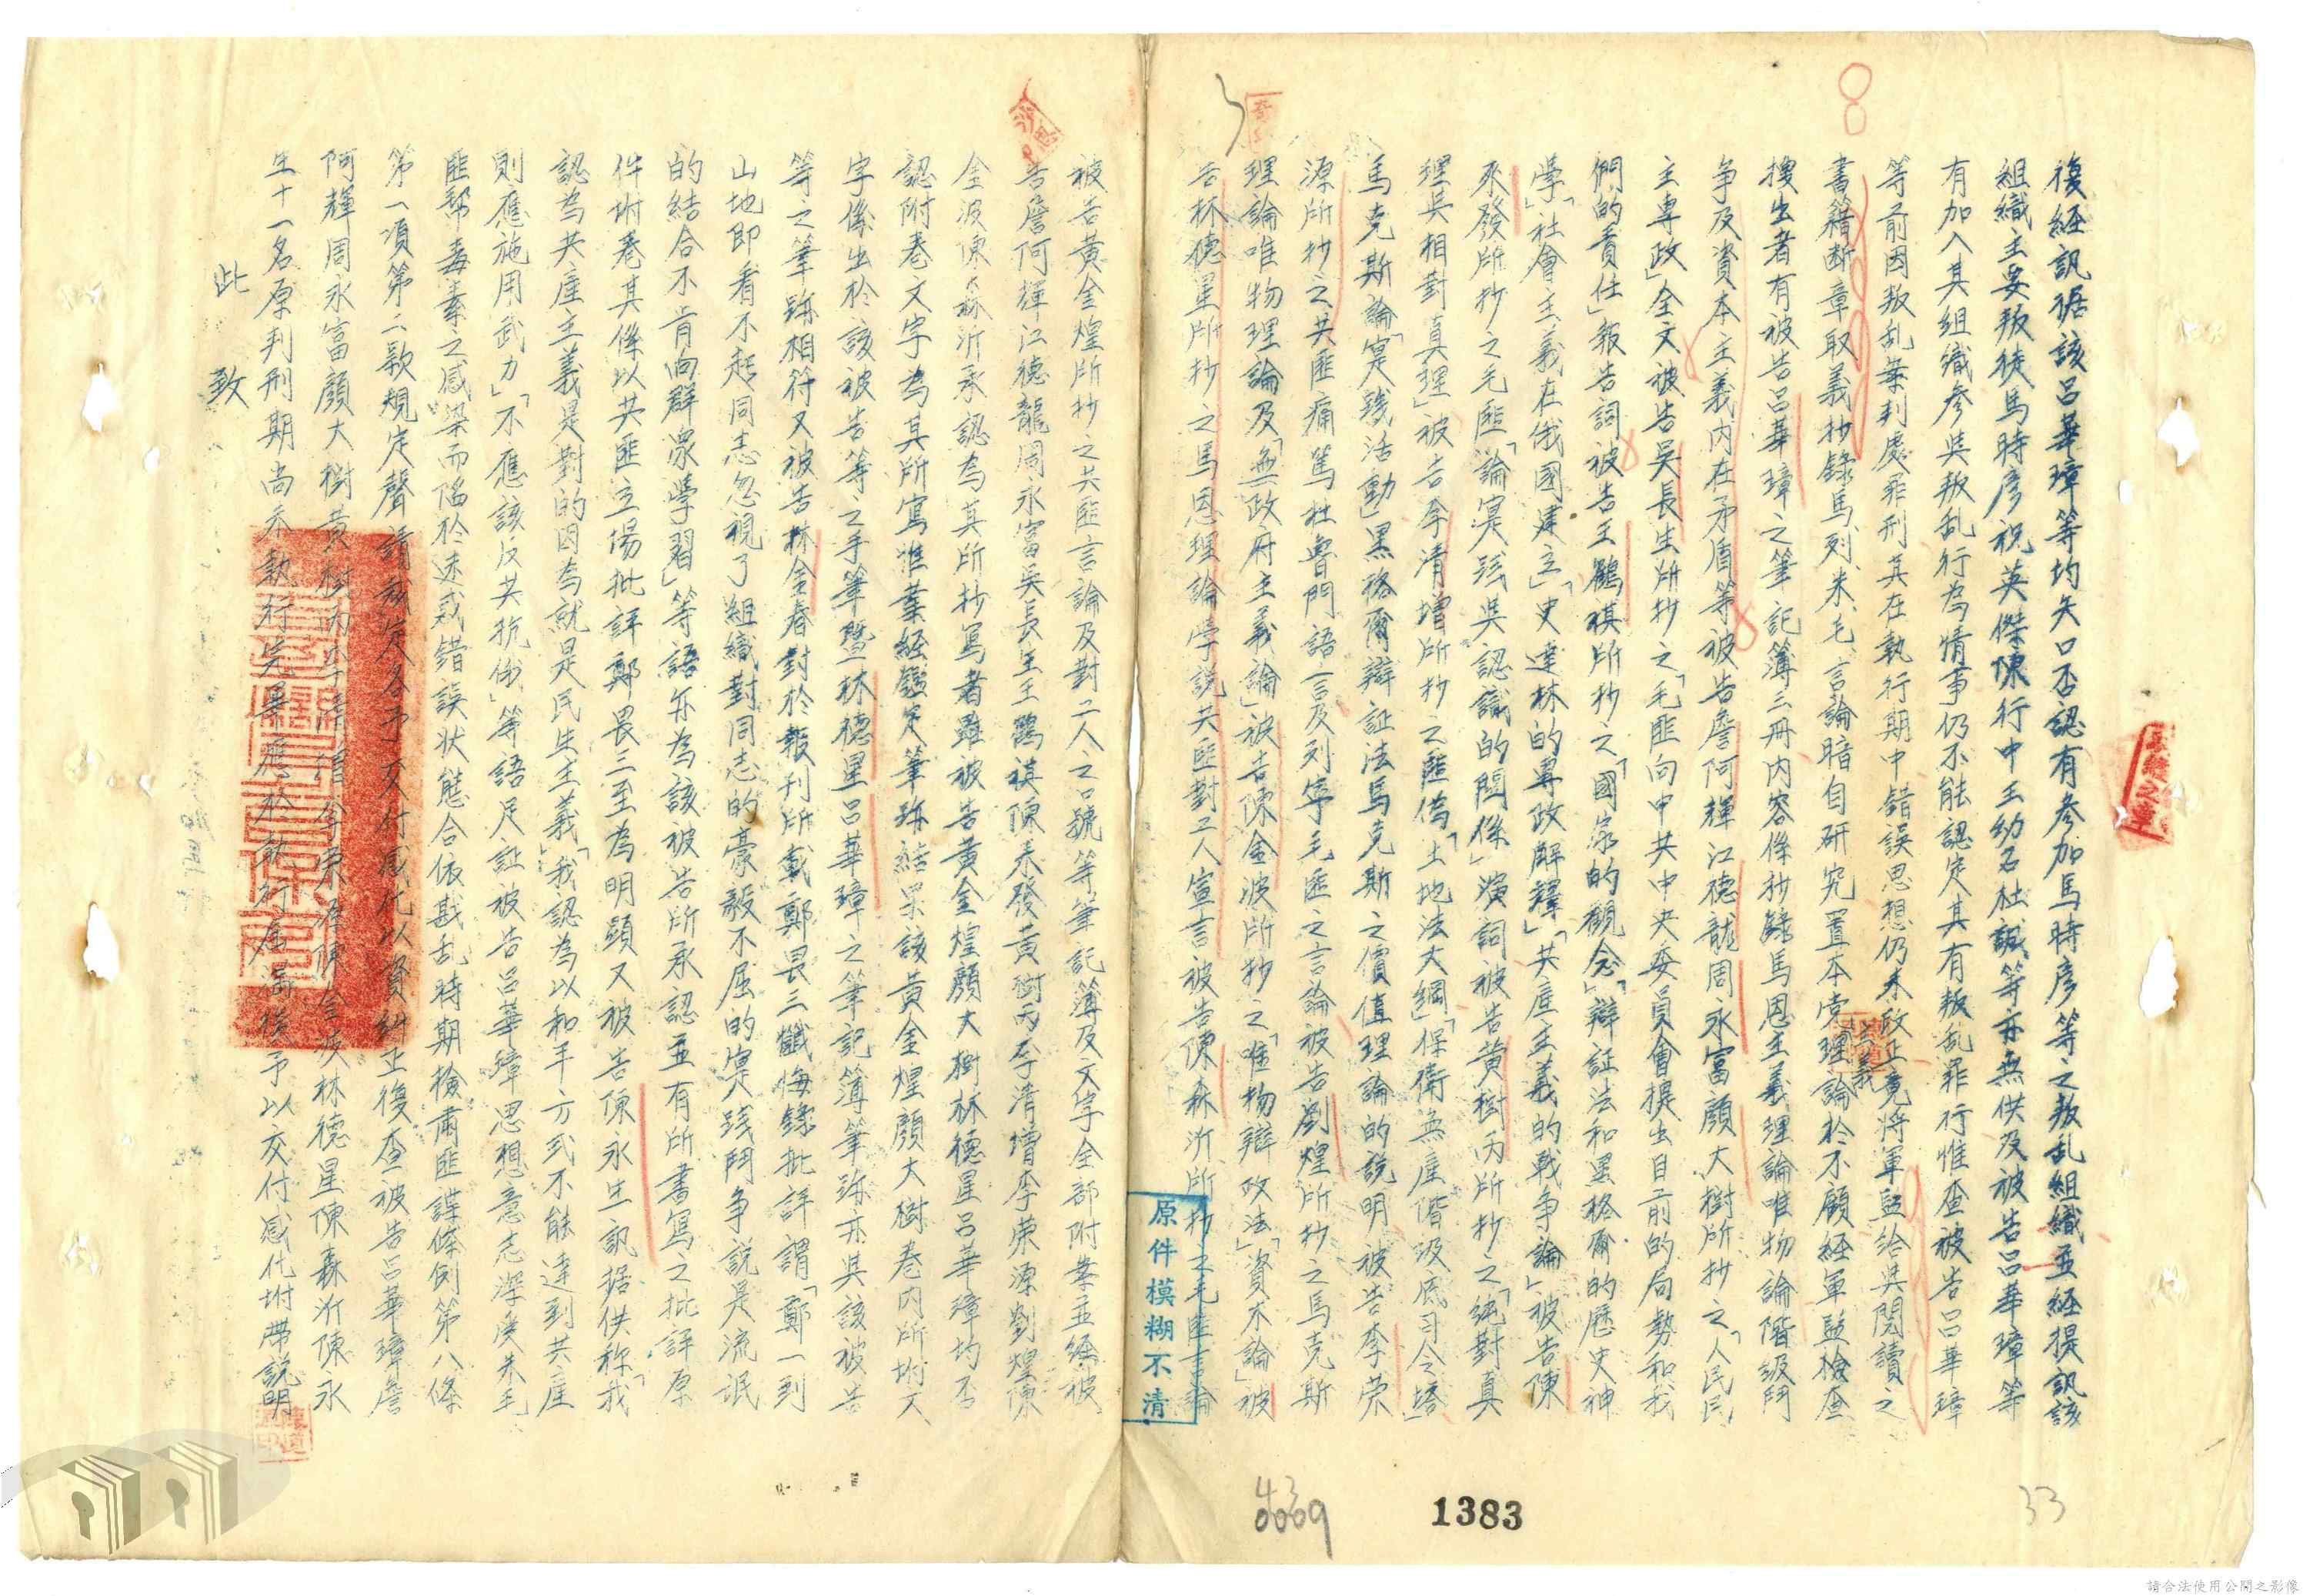 復経訊据該呂華璋等均矢口否認有参加馬時彦等之叛乱組織並経提訊該
組織主要叛徒馬時彦祝英傑陳行中王幼石杜誠等亦無供及被告呂華璋等
有加入其組織参與叛乱行為情事仍不能認定其有叛乱罪行惟查被告呂華璋
等前因叛乱案判處罪刑其在執行期中錯誤思想仍未改正竟将軍監給與閲讀之
書籍断章取義抄錄馬、列、朱、毛、言論暗自研究置本党理論於不顧経軍監檢查
搜出者有被告呂華璋之筆記簿三冊内容係抄錄馬恩主義理論唯物論階級鬥
争及資本主義内在矛盾等被告詹阿輝江德龍周永富顏大樹所抄之「人民民
主專政」全文被告吳長生所抄之「毛匪向中共中央委員會提出目前的局勢和我
們的責任」報告詞被告王鶴祺所抄之「國家的觀念」「辯証法和黑格爾的歷史神
學」「社會主義在俄國建立」「史達林的專政解釋」「共産主義的戰争論」被告陳
泰發所抄之毛匪「論實践與認識的関係」演詞被告黄樹丙所抄之「絶對真
理與相對真理」被告李清增所抄之匪偽「土地法大綱」「保衛無産階級底司令塔」
馬克斯論「實践活動」黑格爾辯証法馬克斯之價值理論的説明被告李荣
源所抄之共匪痛篤杜魯門語言及列寧毛匪之言論被告劉煌所抄之馬克斯
理論唯物理論及「無政府主義論」被告陳金波所抄之「唯物辯政法」「資本論」被
告林德星所抄之馬恩理論學説共匪對工人宣言被告陳森沂所抄之毛匪言論
原件模糊不清
被告黄金煌所抄之共匪言論及對工人之口號等筆記簿及文字全部附案並経被
告詹阿輝江德龍周永富吳長生王鶴祺陳泰發黄樹丙李清增李荣源劉煌陳
金波陳森沂承認為其所抄寫者雖被告黄金煌顏大樹林德星呂華璋均否
認附卷文字為其所寫惟業経鑑定筆跡結果該黄金煌顏大樹卷内所坿文
字係出於該被告等之手筆暨林德星呂華璋之筆記簿筆跡亦與該被告
等之筆跡相符又被告林金春對於報刊所載鄭畏三懺悔錄批評謂「鄭一到
山地即看不起同志忽視了組織對同志的豪毅不屈的實践鬥争説是流氓
的結合不肯向群衆學習」等語亦為該被告所承認並有所書寫之批評原
件坿卷其係以共匪立場批評鄭畏三至為明顕又被告陳永生訊据供称「我
認為共産主義是對的因為就是民生主義」「我認為以和平方式不能達到共産
則應施用武力」「不應該反共抗俄」等語足証被告呂華璋思想意志深受朱毛
匪幫毒素之感染而陷於迷惑錯誤状態合依戡乱時期檢肅匪諜條例第八條
第一項第二款規定聲請裁定各予交付感化以資糾正復查被告呂華璋詹
阿輝周永富顏大樹黄樹丙李清增李荣源陳金波林德星陳森沂陳永
生十一名原判刑期尚未執行完畢應於執行屆滿後予以交付感化坿帶説明
此 致
1383
33
請合法使用公開之影像